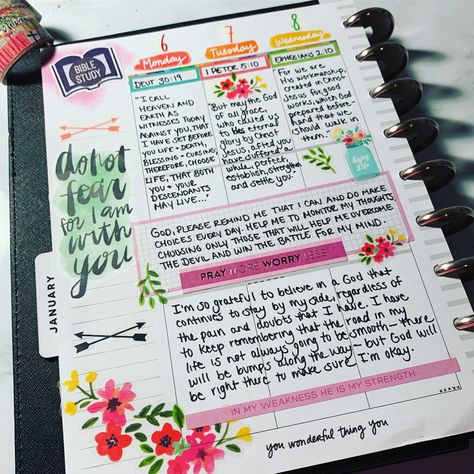 6
Monday
7
Tuesday
8
Wednesday
BIBLE
STUDY
DEUT 30:19
"I CALL
HEAVEN AND
EARTH AS
WITNESSES TODAY
AGAINST YOU, THAT
I HAVE SET BEFORE
YOU LIFE + DEATH,
BLESSING + CURSING,
THEREFORE, CHOOSE
LIFE, THAT BOTH
YOU + YOUR
DESCENDANTS
MAY LIVE..."
1 PETER 5:10
But may the God
of all grace,
who called us
to His eternal
glory by Christ
Jesus, after you
have suffered a
while, perfect,
establish, strengthen
and settle you.
EPHESIANS 2:10
For we are
His workmanship
created in Christ
Jesus for good
works, which God
prepared before-
hand that we
should walk in
them.
Enjoy
Life
do not
fear
for I am
with
you
GOD, PLEASE REMIND ME THAT I CAN AND DO MAKE
CHOICES EVERY DAY. HELP ME TO MONITOR MY THOUGHTS,
CHOOSING ONLY THOSE THAT WILL HELP ME OVERCOME
THE DEVIL AND WIN THE BATTLE FOR MY MIND.
PRAY MORE WORRY LESS
JANUARY
I'm so grateful to believe in a God that
continues to stay by my side, regardless of
the pain and doubts that I have. I have
to keep remembering that the road in my
life is not always going to be smooth - there
will be bumps along the way - but God will
be right there to make sure I'm okay.
IN MY WEAKNESS HE IS MY STRENGTH
you wonderful thing you